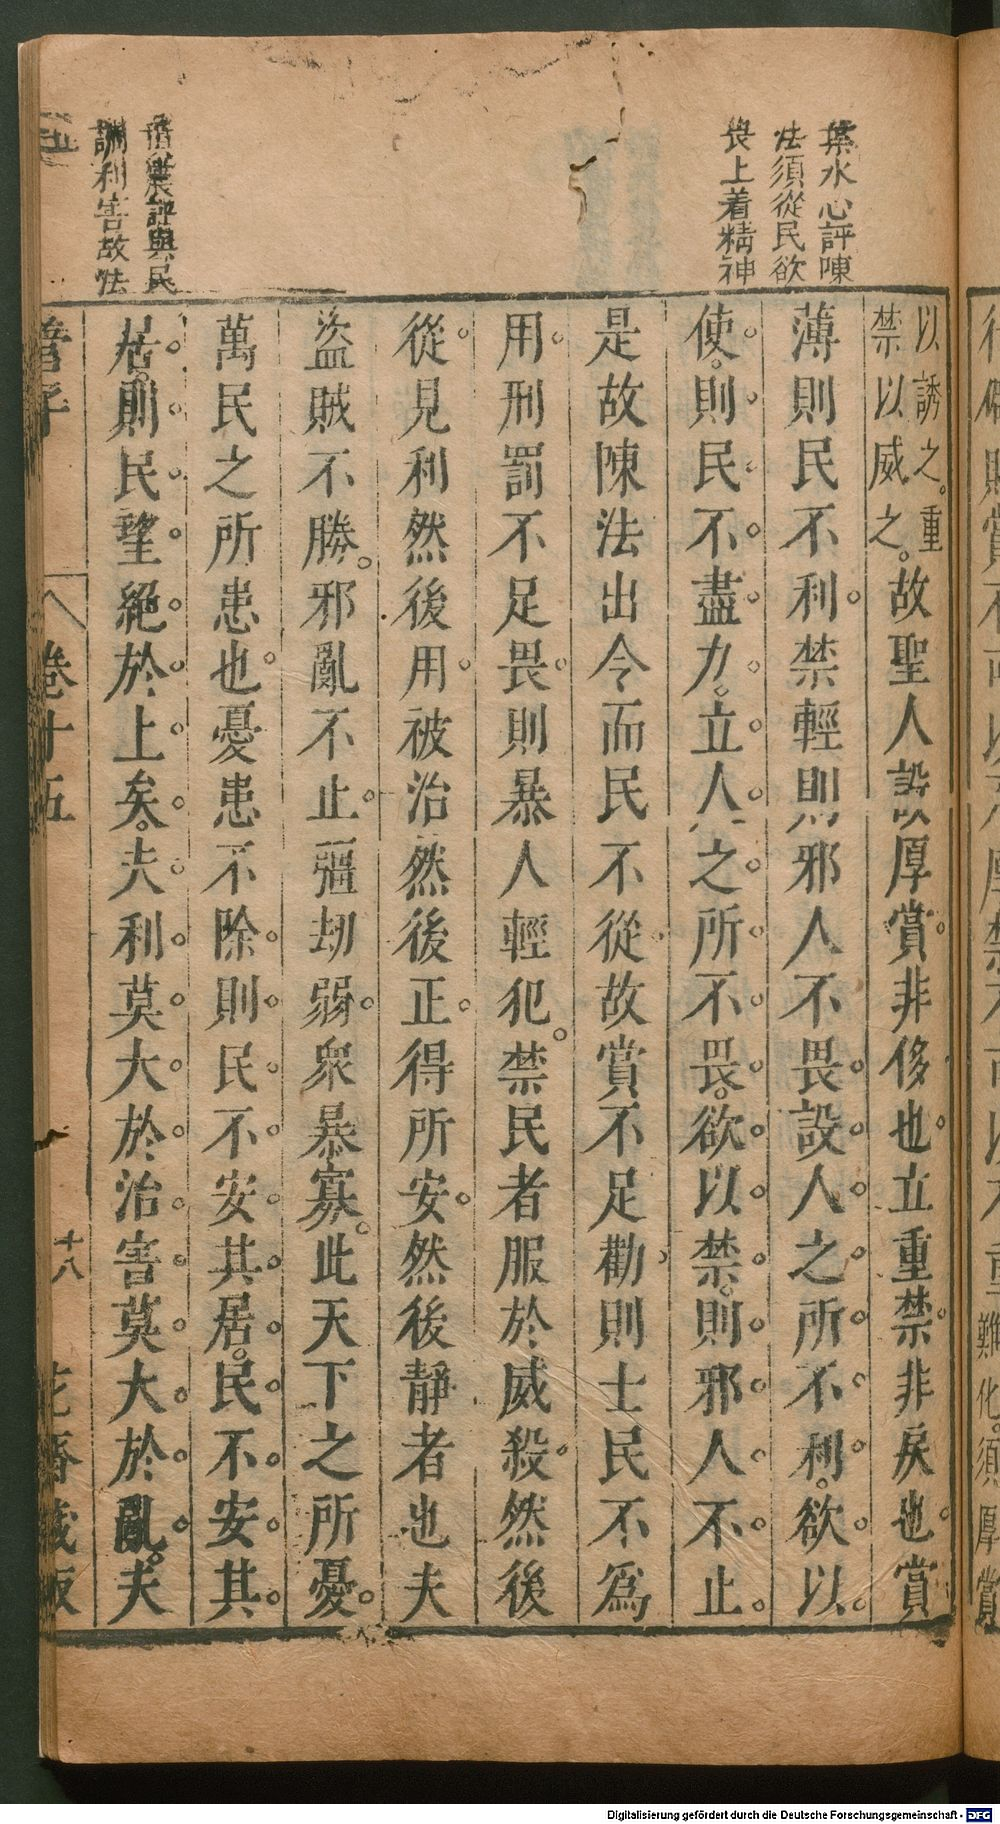 葉水心評陳
法須從民欲
畏上着精神
以誘之重
禁以威之故聖人設厚賞非侈也立重禁非戾也賞
薄則民不利禁輕則邪人不畏設人之所不利欲以
使則民不盡力立人之所不畏欲以禁則邪人不止
是故陳法出令而民不從故賞不足勸則士民不為
用刑罰不足畏則暴人輕犯禁民者服於威殺然後
從見利然後用被治然後正得所安然後靜者也夫
盜賊不勝邪亂不止彊劫弱衆暴寡此天下之所憂
萬民之所患也憂患不除則民不安其居民不安其
居則民望絕於上矣夫利莫大於治害莫大於亂夫
農評與民
調利害故法
管子
卷十五
十八
花齋藏版
難化須厚賞
Digitalisierung gefördert durch die Deutsche Forschungsgemeinschaft - DFG